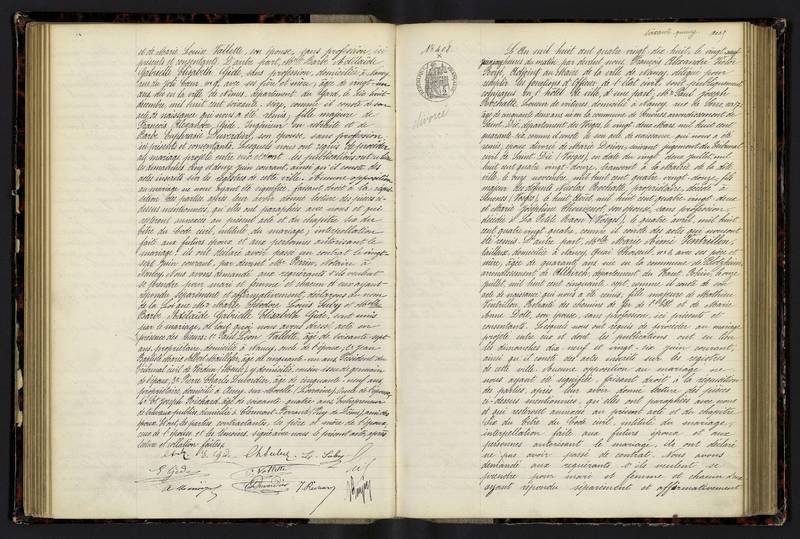 et de Marie Louise Vallette, son épouse, sans profession, ici
présents et consentants. D'autre part, Mlle Barbe Adélaïde
Gabrielle Elisabeth Gide, sans profession, domiciliée à Nancy
avec ses père et mère; âgée de vingt un
ans, née en la ville de Nîmes, département du Gard, le dix huit
décembre mil huit cent soixante seize, comme il conste de son
acte de naissance qui nous a été remis; fille majeure de
François Gide, Ingénieur en retraite et de
Barbe Euphrasie Duverdier, son épouse, sans profession,
ici présents et consentants. Lesquels nous ont requis de procéder
au mariage projeté entre eux et dont les publications ont eu lieu
les dimanches cinq et douze juin courant, ainsi qu'il conste des
actes inscrits sur les registres de cette ville. Aucune opposition
au mariage ne nous ayant été signifiée, faisant droit à la réqui
sition des parties, après leur avoir donné lecture des pièces ci-
dessus mentionnées, qu'elles ont paraphées avec nous et qui
resteront annexées au présent acte et du chapitre Six du
titre du Code civil, intitulé du mariage; l'interpellation
faite aux futurs époux et aux personnes autorisant le
mariage; ils ont déclaré avoir passé un contrat le vingt
sept Juin courant, par devant Me Perrin, Notaire à
Nancy. Nous avons demandé aux requérants s'ils veulent
se prendre pour mari et femme et chacun d'eux ayant
répondu séparément et affirmativement, déclarons au nom
de la Loi que Mr Marie Théodore Louis Suby et Mlle
Barbe Adélaïde Gabrielle Elisabeth Gide, sont unis
par le mariage; de tout quoi nous avons dressé acte en
présence des Sieurs: 1° Paul Léon Vallette, âgé de soixante sept
ans, propriétaire, domicilié à Nancy, oncle de l'époux; 2° Jean
Baptiste Marie Albert, âgé de cinquante un ans, Président du
Tribunal civil de Verdun (Meuse), y domicilié, cousin issu de germain
de l'époux; 3° Pierre Charles Duverdier, âgé de cinquante neuf ans,
propriétaire, domicilié à (Lorraine), oncle de l'épouse;
4° Joseph Richard âgé de soixante quatre ans Entrepreneur
de travaux publics domicilié à Clermont-Ferrand (Puy de Dôme) ami des
époux. Et ont, les parties contractantes, les père et mère de l'époux,
ceux de l'épouse et les témoins, signé avec nous le présent acte, après
lecture et collation faites.
E Gide
L. Suby
E Gide
Vallette
Duverdier
No 408.
divorce
L'An mil huit cent quatre vingt dix huit, le vingt neuf
du matin, par devant nous, François Alexandre Victor
Adjoint au Maire de la ville de Nancy, délégué pour
remplir les fonctions d'Officier de l'état civil, sont publiquement
comparus en l'hôtel de ville, d'une part, Mr Paul Joseph
Rochatte, domicilié à Nancy, rue de Serre, no 17,
âgé de cinquante deux ans né en la commune de Senones, arrondissement de
Saint Dié, département des Vosges, le vingt deux Mars mil huit cent
quarante six, comme il conste de son acte de naissance qui nous a été
remis; époux divorcé de Marie suivant jugement du Tribunal
civil de Saint Dié (Vosges), en date du vingt deux juillet mil
huit cent quatre vingt douze, transcrit à la Mairie de la dite
ville, le onze novembre mil huit cent quatre vingt douze; fils
majeur des défunts Nicolas Rochatte, propriétaire, décédé à
Senones (Vosges), le huit Août mil huit cent quatre vingt deux
et Marie Joséphine son épouse, sans profession,
décédée à La Petite Raon (Vosges), le quatre avril, mil huit
cent quatre vingt quatre, comme il conste des actes qui nous ont
été remis. D'autre part, Mlle Marie Aimée Vautrillon,
tailleuse, domiciliée à Nancy, Quai Choiseul, no 4 avec ses père et
mère; âgée de quarante ans née en la commune de
arrondissement de Altkirch, département du Haut-Rhin, le onze
juillet, mil huit cent cinquante sept, comme il conste de son
acte de naissance qui nous a été remis; fille majeure de Mathieu
Vautrillon, Retraité des Chemins de fer de l'Est, et de Marie
Anne Doll, son épouse, sans profession, ici présents et
consentants. Lesquels nous ont requis de procéder au mariage
projeté entre eux et dont les publications ont eu lieu
les dimanches dix neuf et vingt six Juin courant,
ainsi qu'il conste des actes inscrits sur les registres
de cette ville. Aucune opposition au mariage ne
nous ayant été signifiée, faisant droit à la réquisition
des parties, après leur avoir donné lecture des pièces
ci-dessus mentionnées, qu'elles ont paraphées avec nous
et qui resteront annexées au présent acte et du chapitre
Six du titre du Code civil, intitulé du mariage;
interpellation faite aux futurs époux et aux
personnes autorisant le mariage, ils ont déclaré
ne pas avoir passé de contrat. Nous avons
demandé aux requérants s'ils veulent se
prendre pour mari et femme et chacun d'eux
ayant répondu séparément et affirmativement